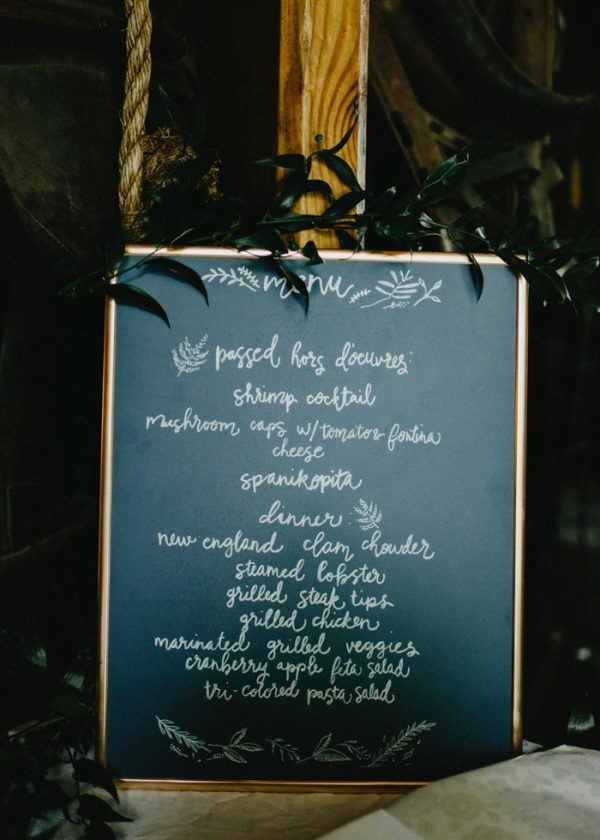 menu
passed hors d'oeuvres:
shrimp cocktail
mushroom caps w/ tomato & fontina
cheese
spanikopita
dinner:
new england clam chowder
steamed lobster
grilled steak tips
grilled chicken
marinated grilled veggies
cranberry apple feta salad
tri-colored pasta salad